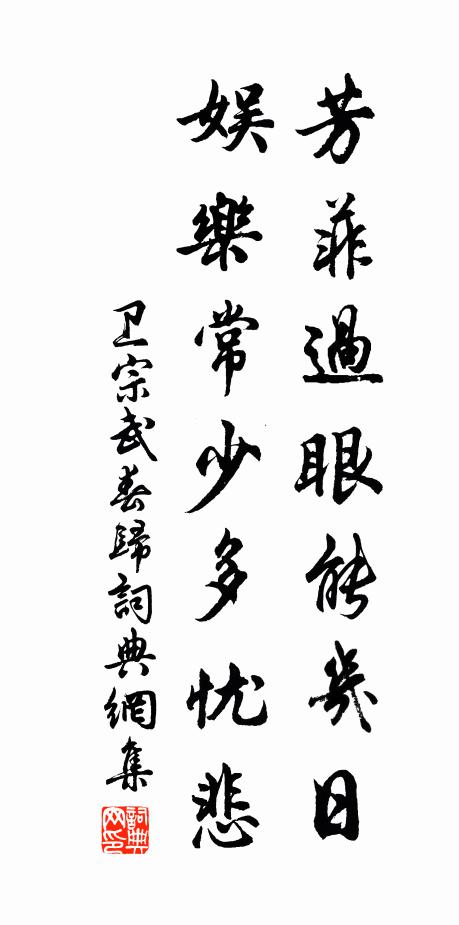 芳菲過眼能幾日
娛樂常少多忧悲
卫宗武春歸詞典網集
詞典网印